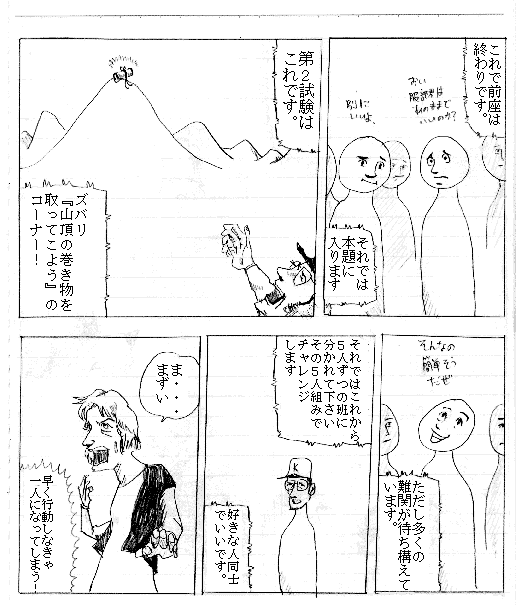 これで前座は
終わりです。
おい
服装は
このままで
いいのか?
別に
いいよ
それでは
本題に
入ります
第2試験は
これです。
ズバリ
『山頂の巻き物を
取ってこよう』の
コーナー!
そんなの
簡単そう
だぜ
ただし多くの
難関が待ち構えて
います。
それではこれから
5人ずつの班に
分かれて下さい
その5人組みで
チャレンジ
します
K
好きな人同士
でいいです。
ま・・・
まずい
早く行動しなきゃ
一人になってしまう!